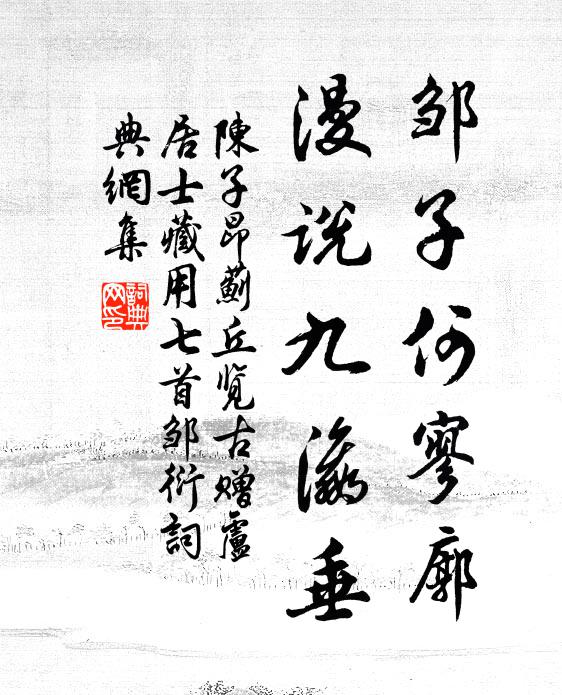 邹子何寥廓
漫说九瀛垂
陳子昂薊丘览古赠盧
居士藏用七首邹衍詞
典網集
詞典网印